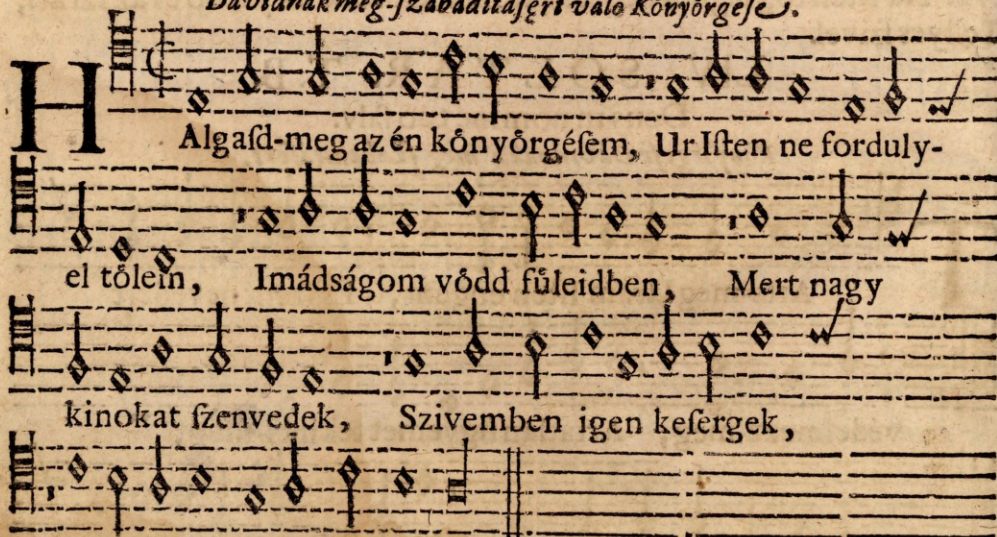 Davidnak meg-ſzabaditáſęrt valo Kőnyőrgeſe.
HAlgaſd-meg az én kőnyőrgéſem, Ur Iſten ne forduly-
el tőlem, Imádságom vődd fűleidben, Mert nagy
kinokat ſzenvedek, Szivemben igen keſergek,